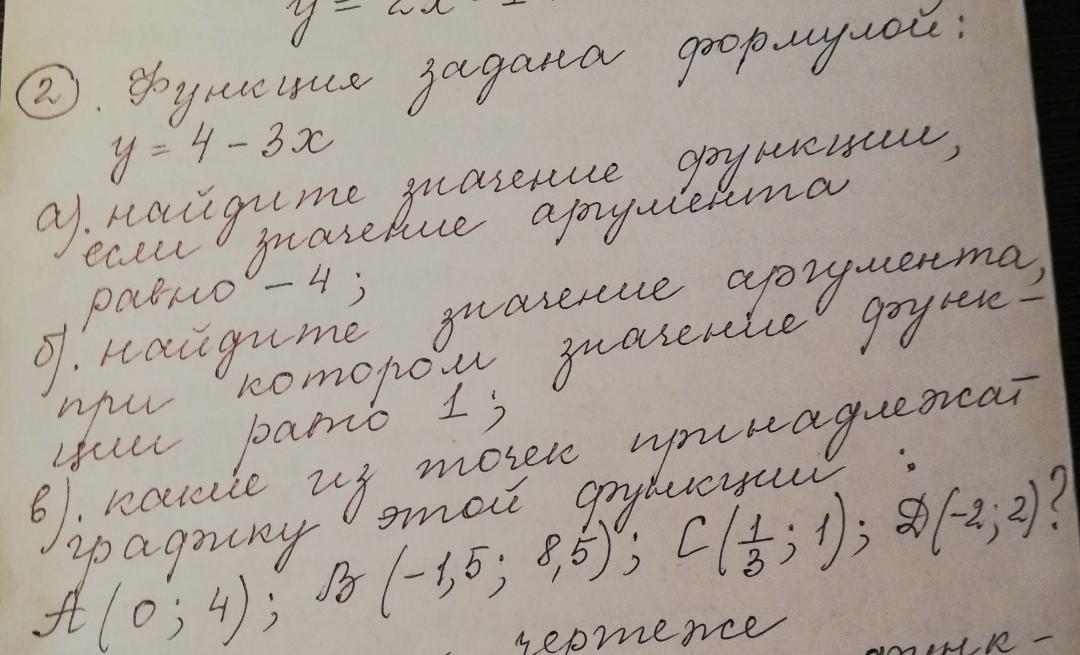 y = 2x - 1
② . Функция задана формулой:
y = 4 - 3x
а). найдите значение функции,
если значение аргумента
равно - 4 ;
б). найдите значение аргумента,
при котором значение функ-
ции равно 1 ;
в). какие из точек принадлежат
графику этой функции :
A (0 ; 4) ; B (-1,5 ; 8,5) ; C (1/3 ; 1) ; D (-2 ; 2) ?
чертеже
функ-